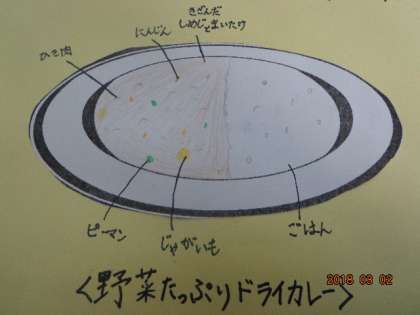 きざんだ
しめじとまいたけ
にんじん
ひき肉
ピーマン
じゃがいも
ごはん
<野菜たっぷりドライカレー>
2018 08 02